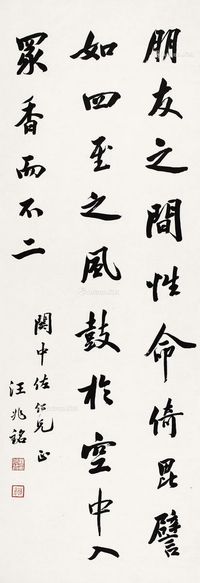 朋友之間性命倚毘譬
如四至之風鼓於空中入
眾香而不二
閎中佐仁兄正
汪兆銘